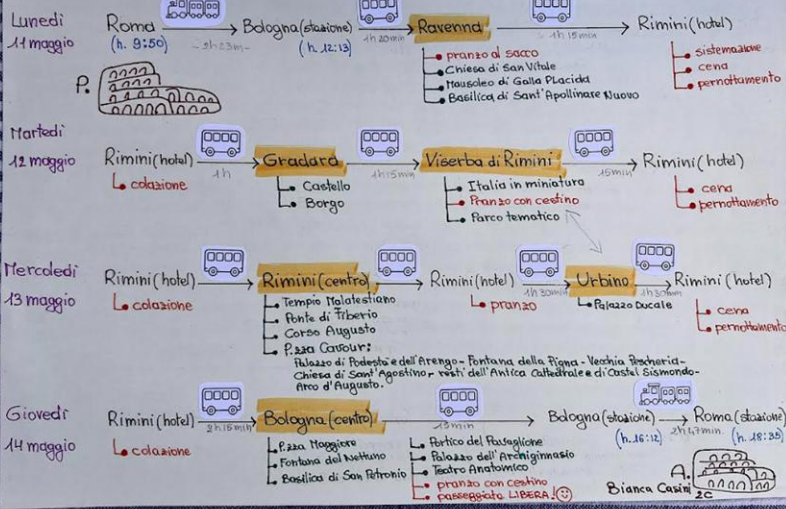 Lunedì
11 maggio
Roma
(h. 9:50)
2h23m
Bologna (stazione)
(h. 12:13)
1h20min
Ravenna
pranzo al sacco
Chiesa di San Vitale
Mausoleo di Galla Placida
Basilica di Sant'Apollinare Nuovo
1h 15min
Rimini (hotel)
sistemazione
cena
pernottamento
P.
Martedì
12 maggio
Rimini (hotel)
colazione
1h
Gradara
Castello
Borgo
1h15min
Viserba di Rimini
Italia in miniatura
Pranzo con cestino
Parco tematico
15min
Rimini (hotel)
cena
pernottamento
Mercoledì
13 maggio
Rimini (hotel)
colazione
Rimini (centro)
Tempio Malatestiano
Ponte di Tiberio
Corso Augusto
P.zza Cavour:
Palazzo di Podestà e dell'Arengo - Fontana della Pigna - Vecchia Pescheria -
Chiesa di Sant'Agostino, resti dell'Antica Cattedrale e di Castel Sismondo -
Arco d'Augusto.
Rimini (hotel)
pranzo
1h30min
Urbino
Palazzo Ducale
1h30min
Rimini (hotel)
cena
pernottamento
Giovedì
14 maggio
Rimini (hotel)
colazione
2h15min
Bologna (centro)
P.zza Maggiore
Fontana del Nettuno
Basilica di San Petronio
15min
Portico del Pavaglione
Palazzo dell'Archiginnasio
Teatro Anatomico
pranzo con cestino
passeggiata LIBERA!
Bologna (stazione)
(h. 16:12)
2h47min.
Roma (stazione)
(h. 18:35)
A.
Bianca Casini 2C